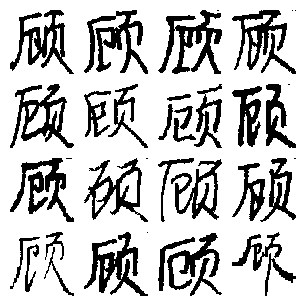 顾顾顾顾
顾顾顾顾
顾顾顾顾
顾顾顾顾